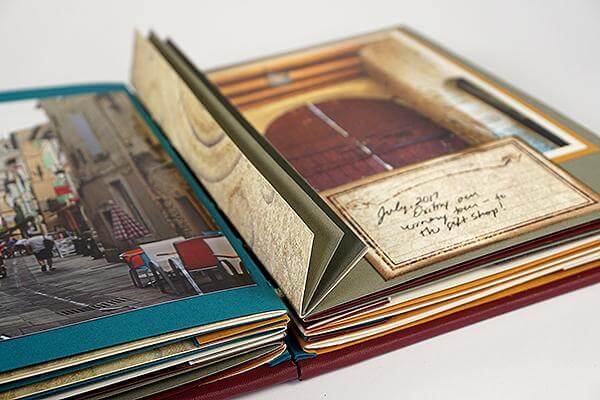 July, 2017
Exiting our
winery tour - to
the gift shop!